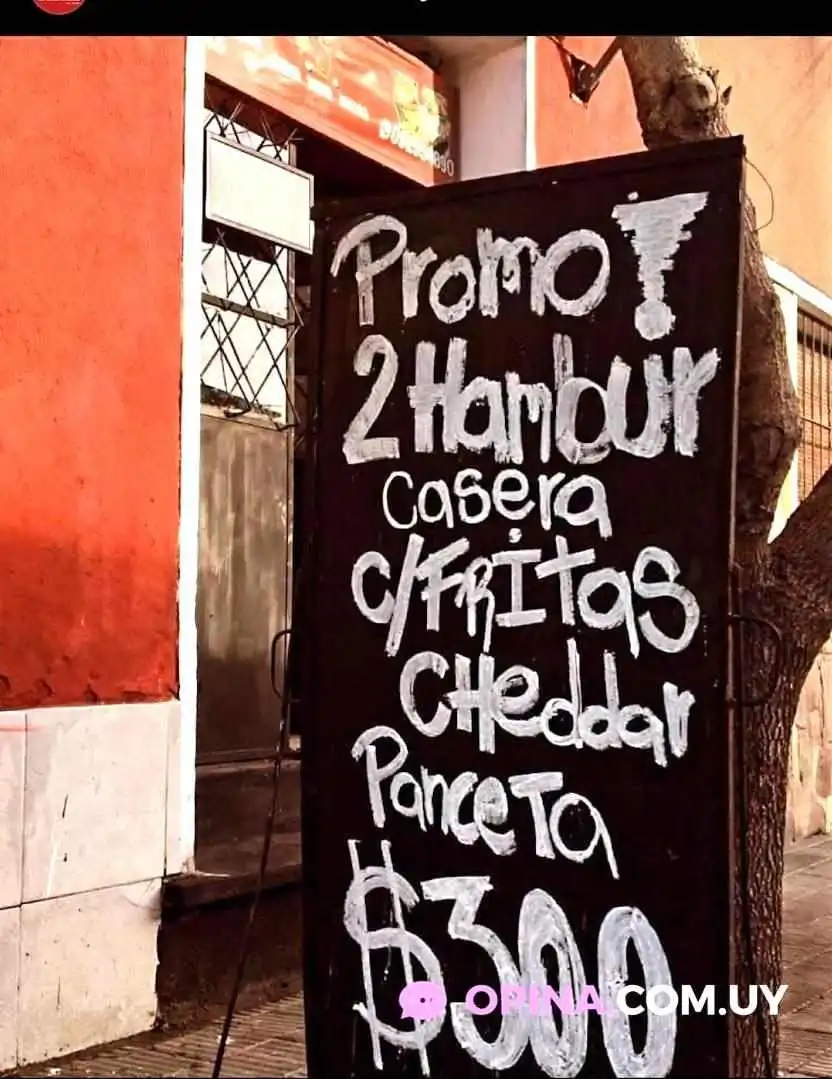 Promo!
2 Hambur
Casera
c/FRItas
CHeddar
PanceTa
$300
OPINA.COM.UY